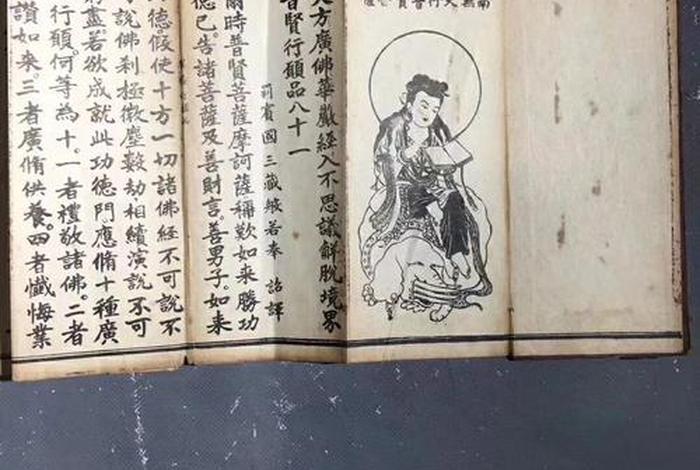 南無大行普賢菩薩
大方廣佛華嚴經入不思議解脫境界
普賢行願品八十一
罽賓國三藏般若奉 詔譯
爾時普賢菩薩摩訶薩稱歎如來勝功
德已。告諸菩薩及善財言。善男子。如來
德。假使十方一切諸佛經不可說不
說佛刹極微塵數劫。相續演說不可
窮盡。若欲成就此功德門。應脩十種廣
行願。何等為十。一者禮敬諸佛。二者
讚如來。三者廣脩供養。四者懺悔業